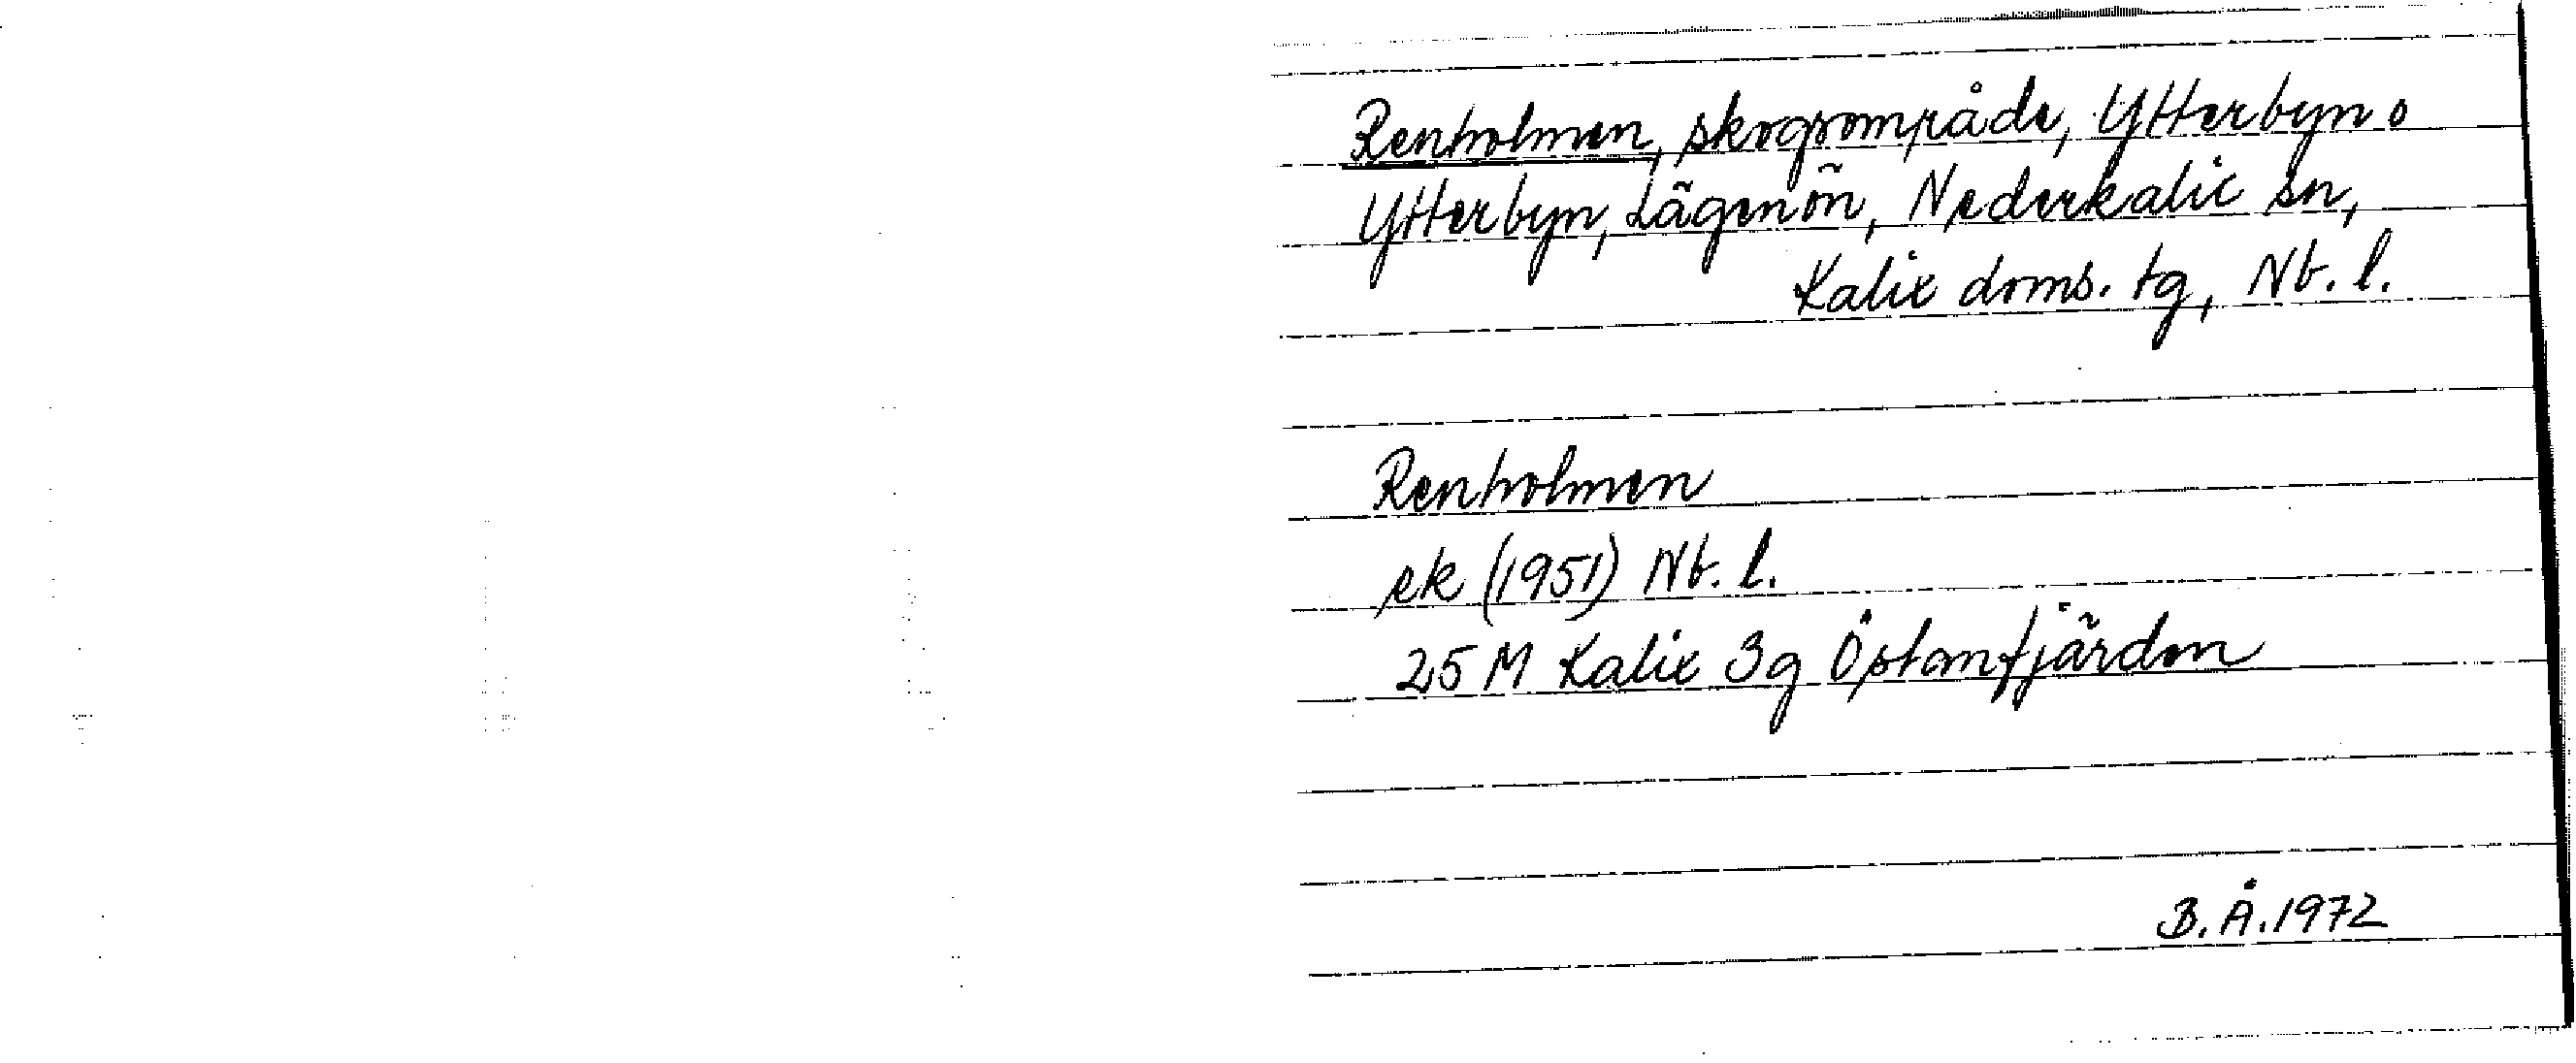 Renholmen, skogsområde, Ytterbyn o
Ytterbyn, Lägenön, Nederkalix sn,
Kalix doms. tg, Nb. l.
Renholmen
ek (1951) Nb. l.
25 M Kalix 3g Östanfjärden
B. Å. 1972